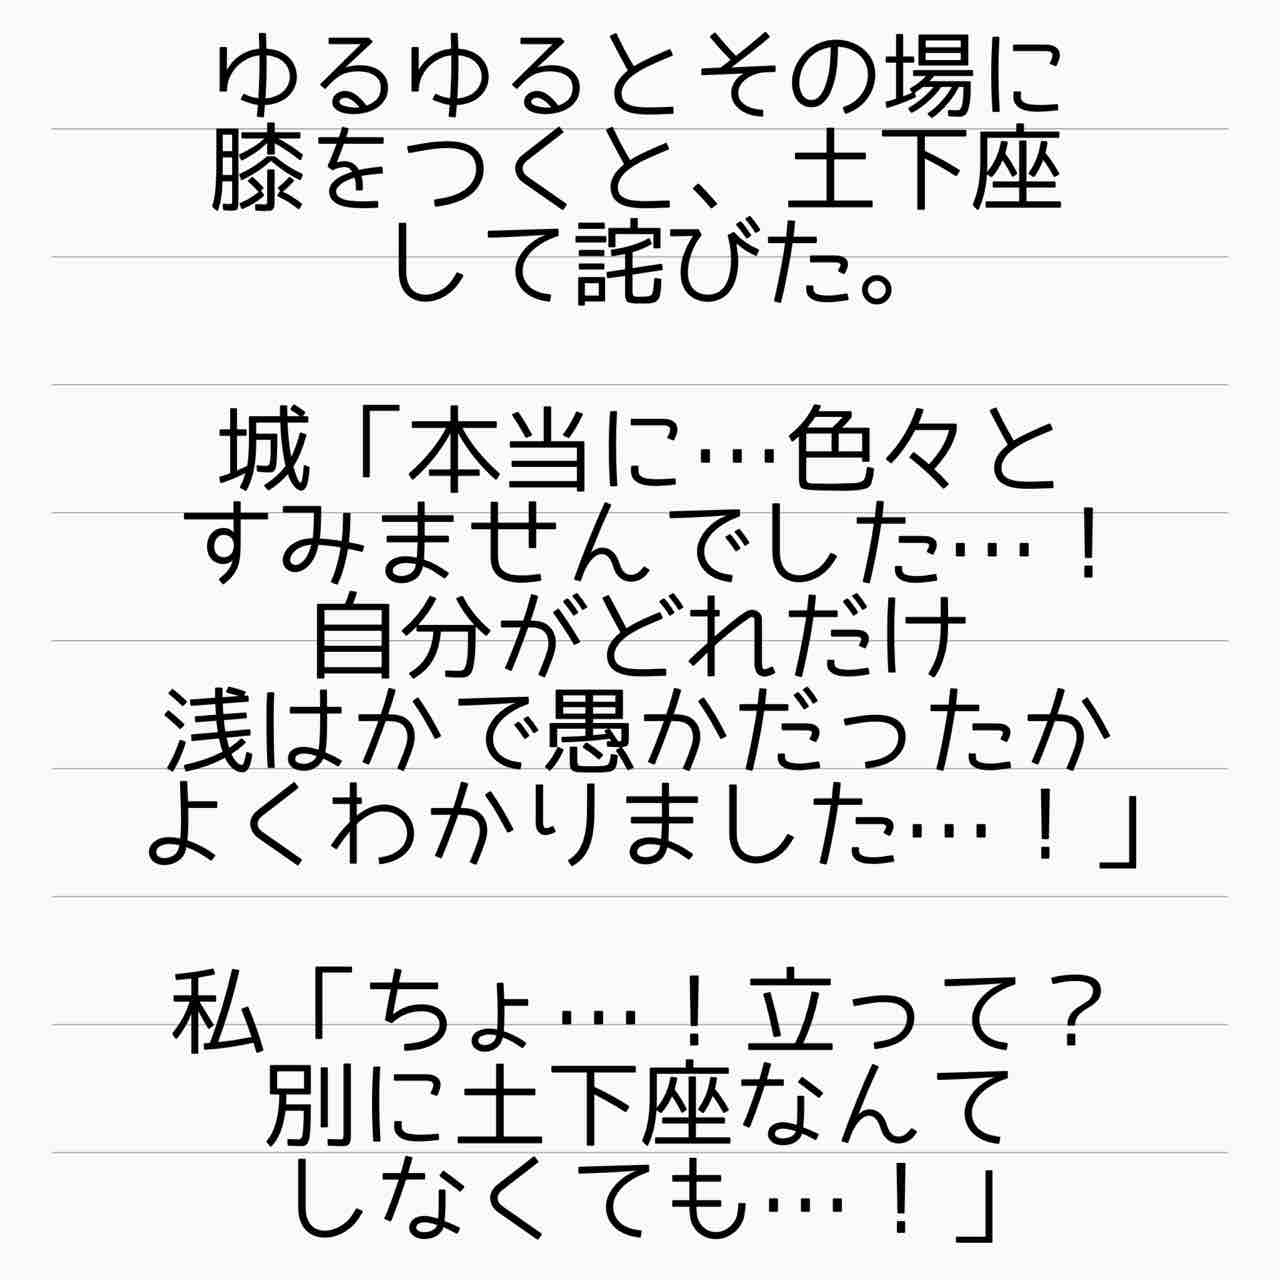 ゆるゆるとその場に
膝をつくと、土下座
して詫びた。
城「本当に…色々と
すみませんでした…！
自分がどれだけ
浅はかで愚かだったか
よくわかりました…！」
私「ちょ…！立って？
別に土下座なんて
しなくても…！」